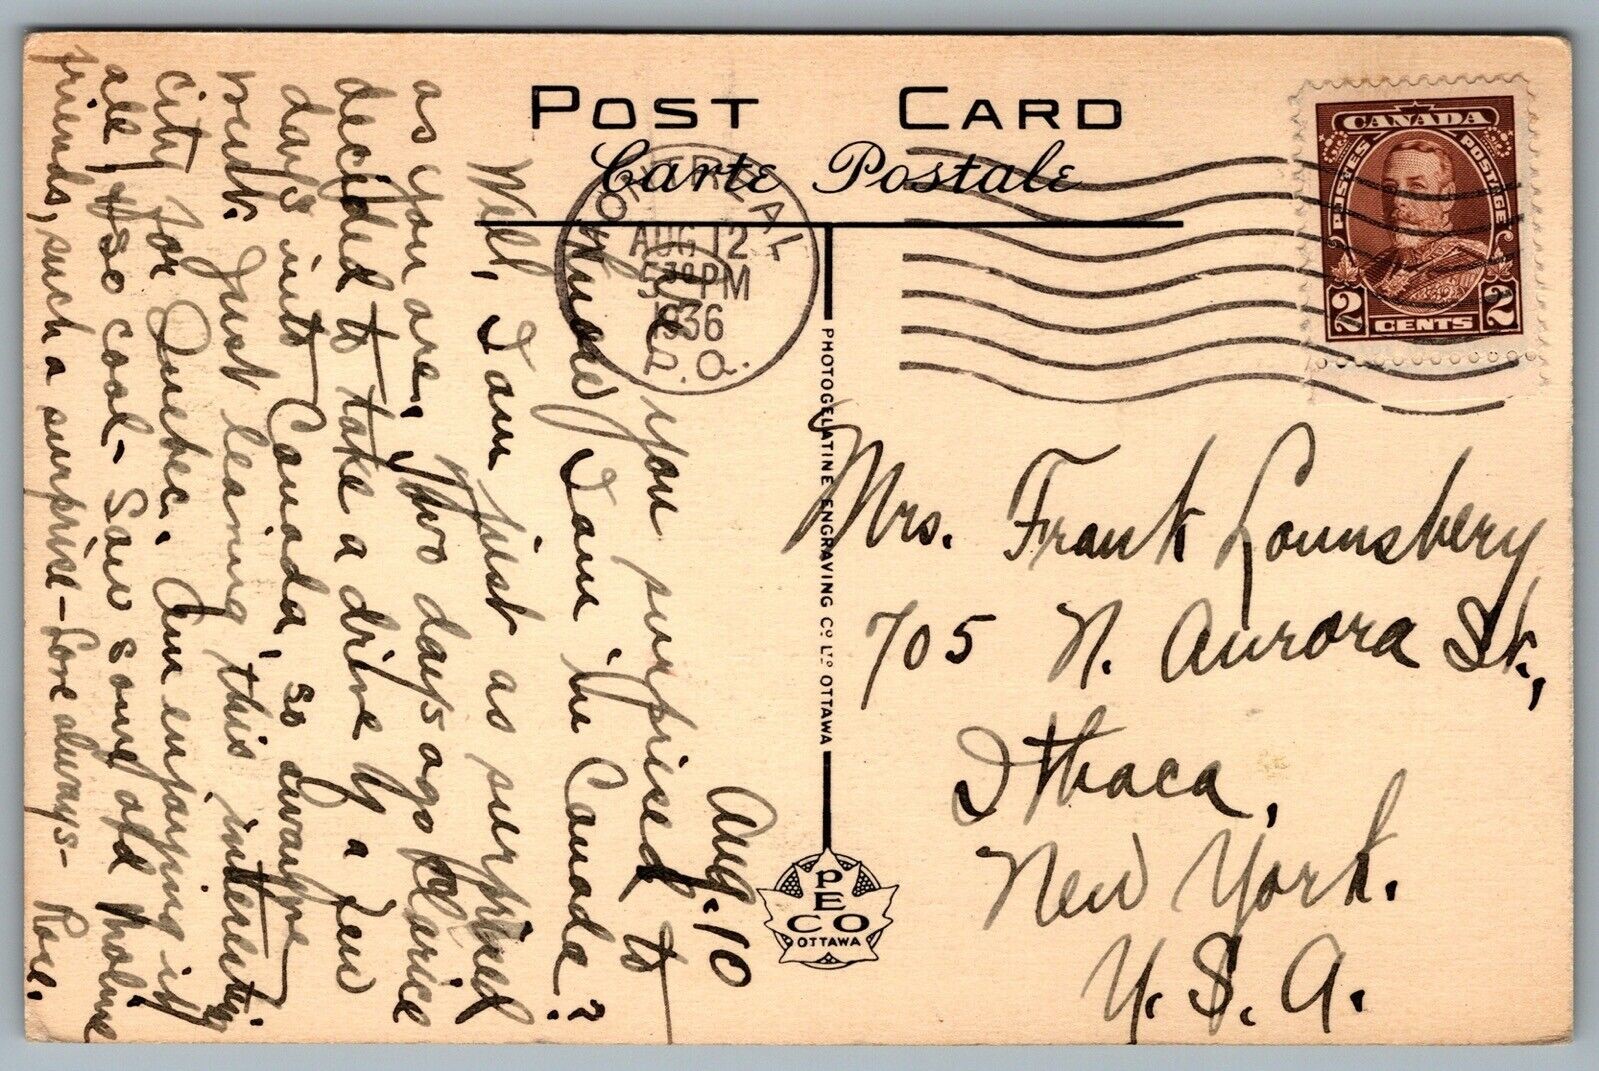 POST CARD
Carte Postale
CANADA
POSTES POSTAGE
2 CENTS 2
MONTREAL
AUG 12
5 30 PM
1936
P.Q.
PHOTOGELATINE ENGRAVING CO LTD OTTAWA
PECO
OTTAWA
Aug. 10
Are you surprised to
know I am in Canada?
Well, I am just as surprised
as you are. Two days ago Clarice
decided to take a drive by a few
day's into Canada, so
result. Just leaving this interesting
city for Quebec. Am enjoying it
all, so cool - Saw some old Moline
friends, such a surprise - Love always - Rose.
Mrs. Frank Lounsbery
705 N. Aurora St.,
Ithaca,
New York.
U.S.A.